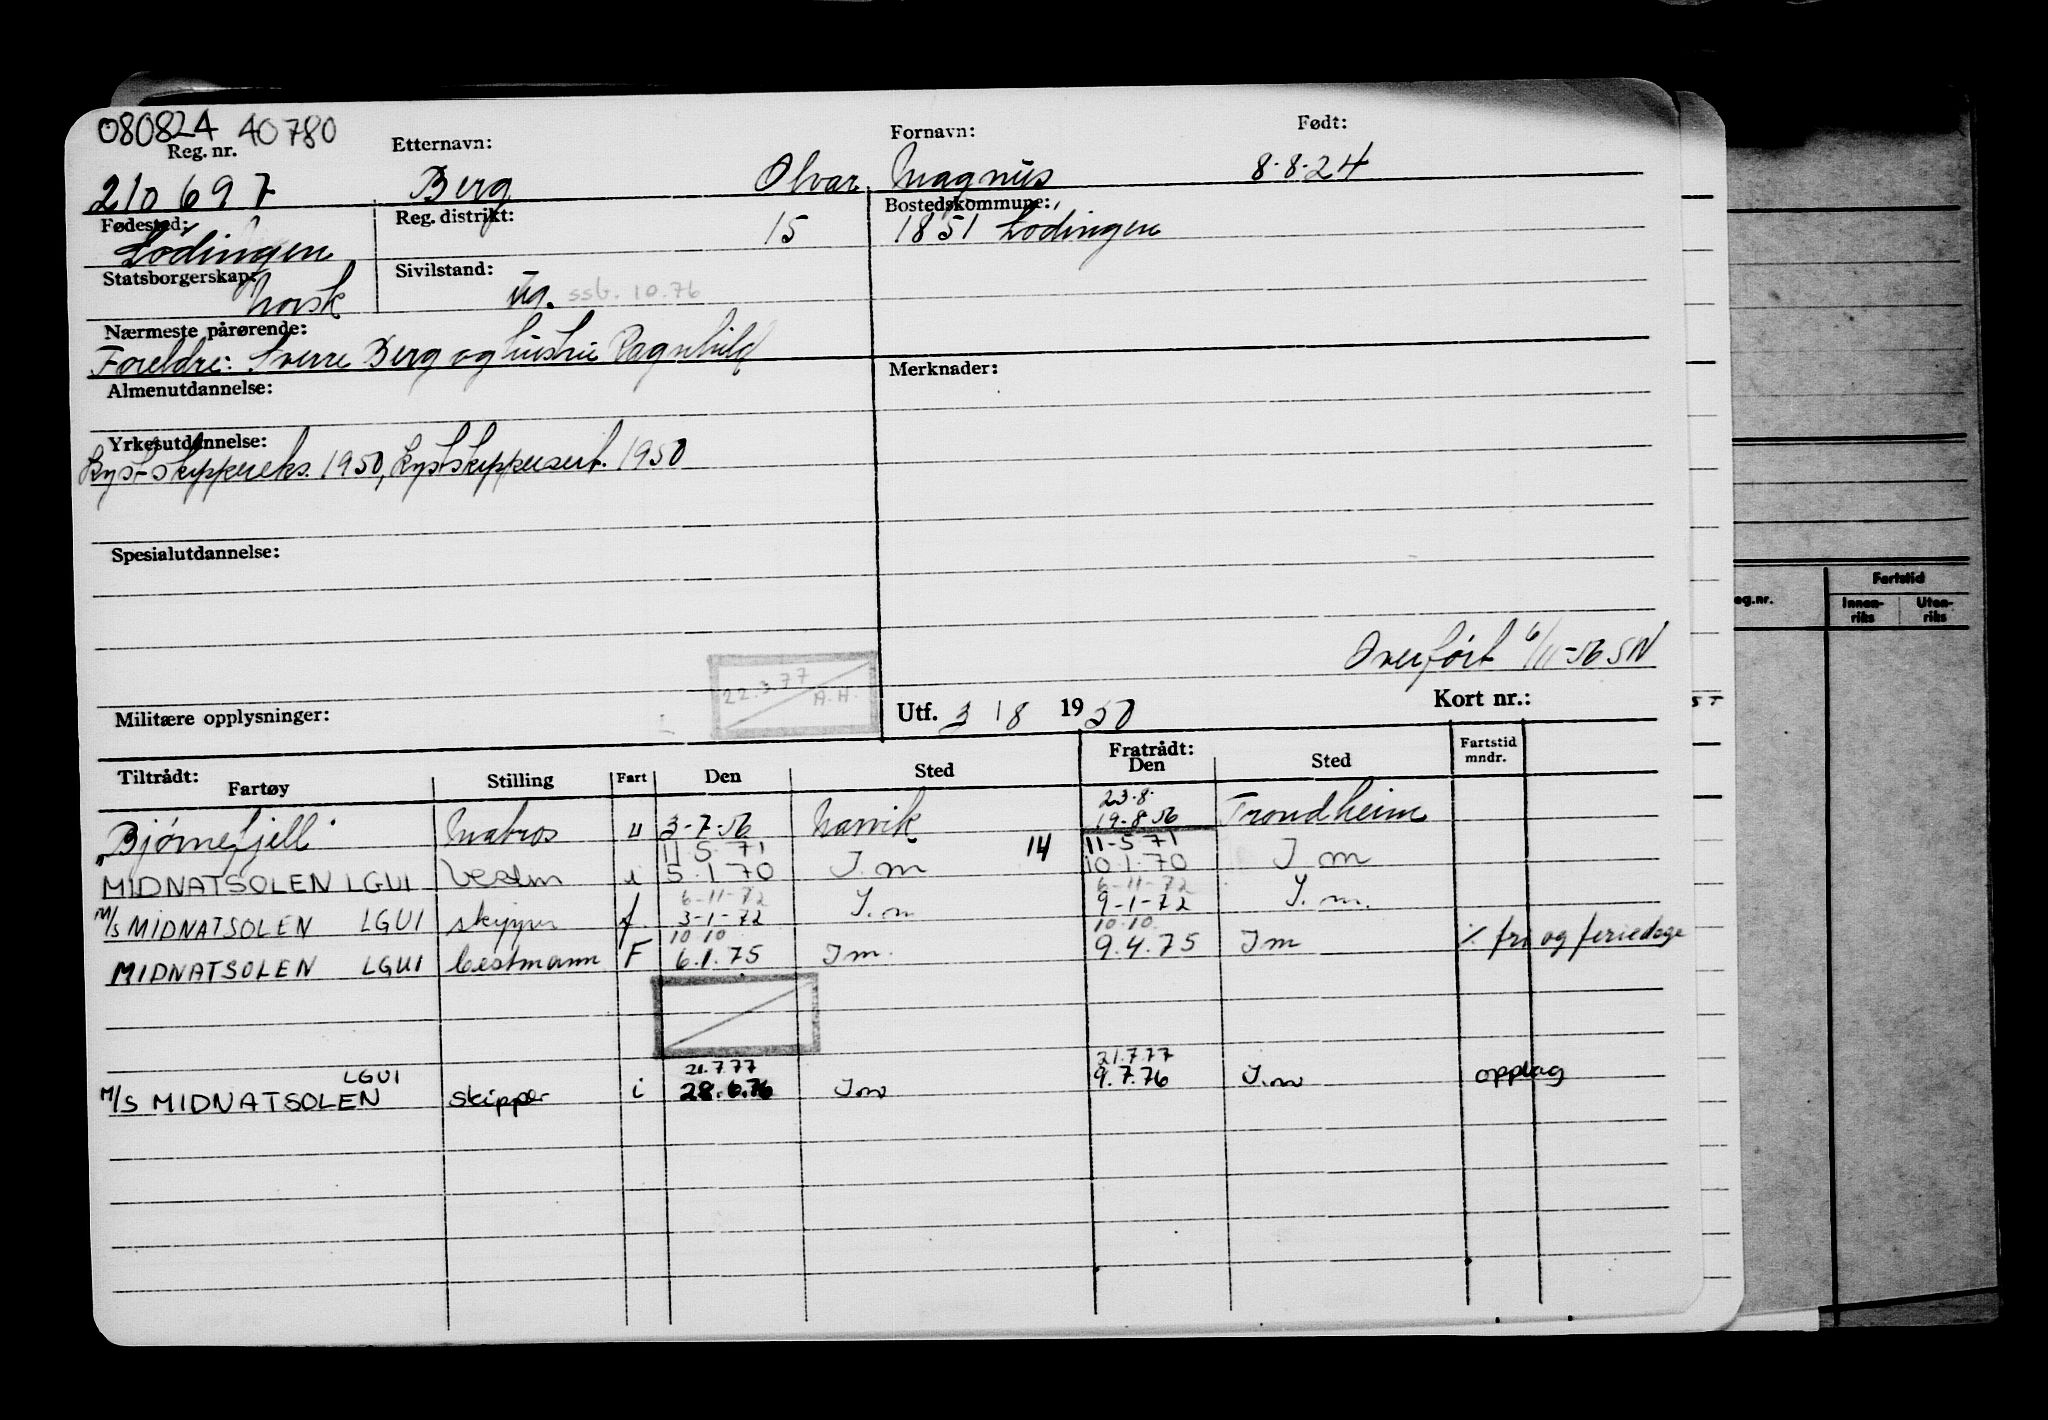 080824 40780
Reg. nr. Etternavn: Fornavn: Født:
210697 Berg Olvar Magnus 8.8.24
Fødested: Reg. distrikt: Bostedskommune:
Lødingen 15 1851 Lødingen
Statsborgerskap: Sivilstand:
norsk ug. ssb. 10.76
Nærmeste pårørende:
Foreldre: Sverre Berg og hustru Ragnhild
Almenutdannelse: Merknader:
Yrkesutdannelse:
Kyst-skippereks. 1950, kystskippersert. 1950
Spesialutdannelse:
Overført 6/11-56 SN
22.3.77 A.H.
Militære opplysninger: Utf. 3 / 8 1950 Kort nr.:
Tiltrådt: Fratrådt: Fartstid
Fartøy Stilling Fart Den Sted Den Sted mndr.
23.8.
"Bjørnefjell" Matros u 3-7-56 Narvik 19-8-56 Trondheim
11.5.71 14 11-5 71
MIDNATSOLEN LGUI bestm i 5.1.70 I.m 10.1.70 I m
6-11-72 6-11-72
M/S MIDNATSOLEN LGUI skipper f. 3-1-72 I.m 9-1-72 I.m.
10 10 10.10.
MIDNATSOLEN LGUI bestmann F 6.1.75 I m. 9.4.75 I m % fri og feriedage
LGUI 21.7.77 21.7.77
M/S MIDNATSOLEN skipper i 28.6.76 I.m 9.7.76 I.m opplag
eg.nr. Fartstid
Innen-riks Uten-riks